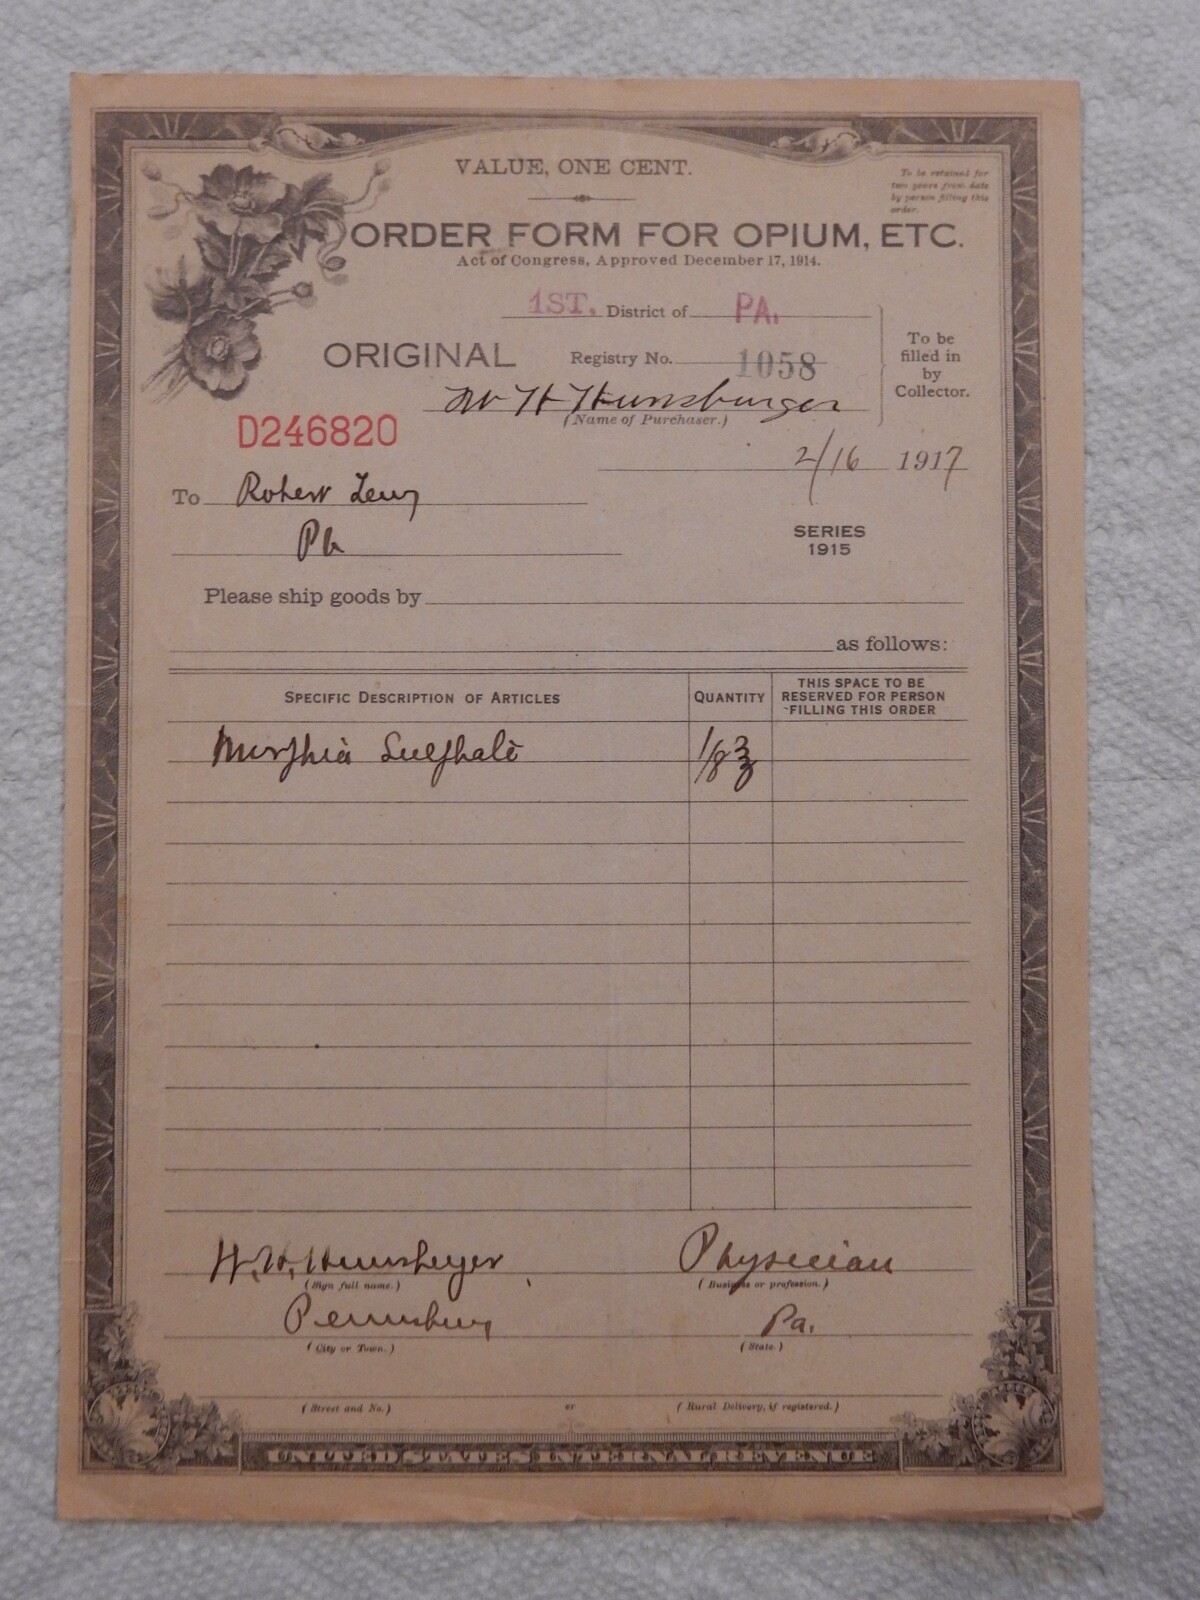 VALUE, ONE CENT.
To be retained for
two years from date
by person filling this
order.
ORDER FORM FOR OPIUM, ETC.
Act of Congress, Approved December 17, 1914.
1ST. District of PA.
ORIGINAL
Registry No. 1058
To be
filled in
by
Collector.
H Hunsberger
(Name of Purchaser.)
D246820
2/16 1917
To Robert
SERIES
1915
Please ship goods by
as follows:
SPECIFIC DESCRIPTION OF ARTICLES
QUANTITY
THIS SPACE TO BE
RESERVED FOR PERSON
FILLING THIS ORDER
Morphia Sulphate
1/8 ℥
H. H. Hunsberger
Physician
(Sign full name.)
(Business or profession.)
Pennsburg
Pa.
(City or Town.)
(State.)
(Street and No.)
or
(Rural Delivery, if registered.)
UNITED STATES INTERNAL REVENUE